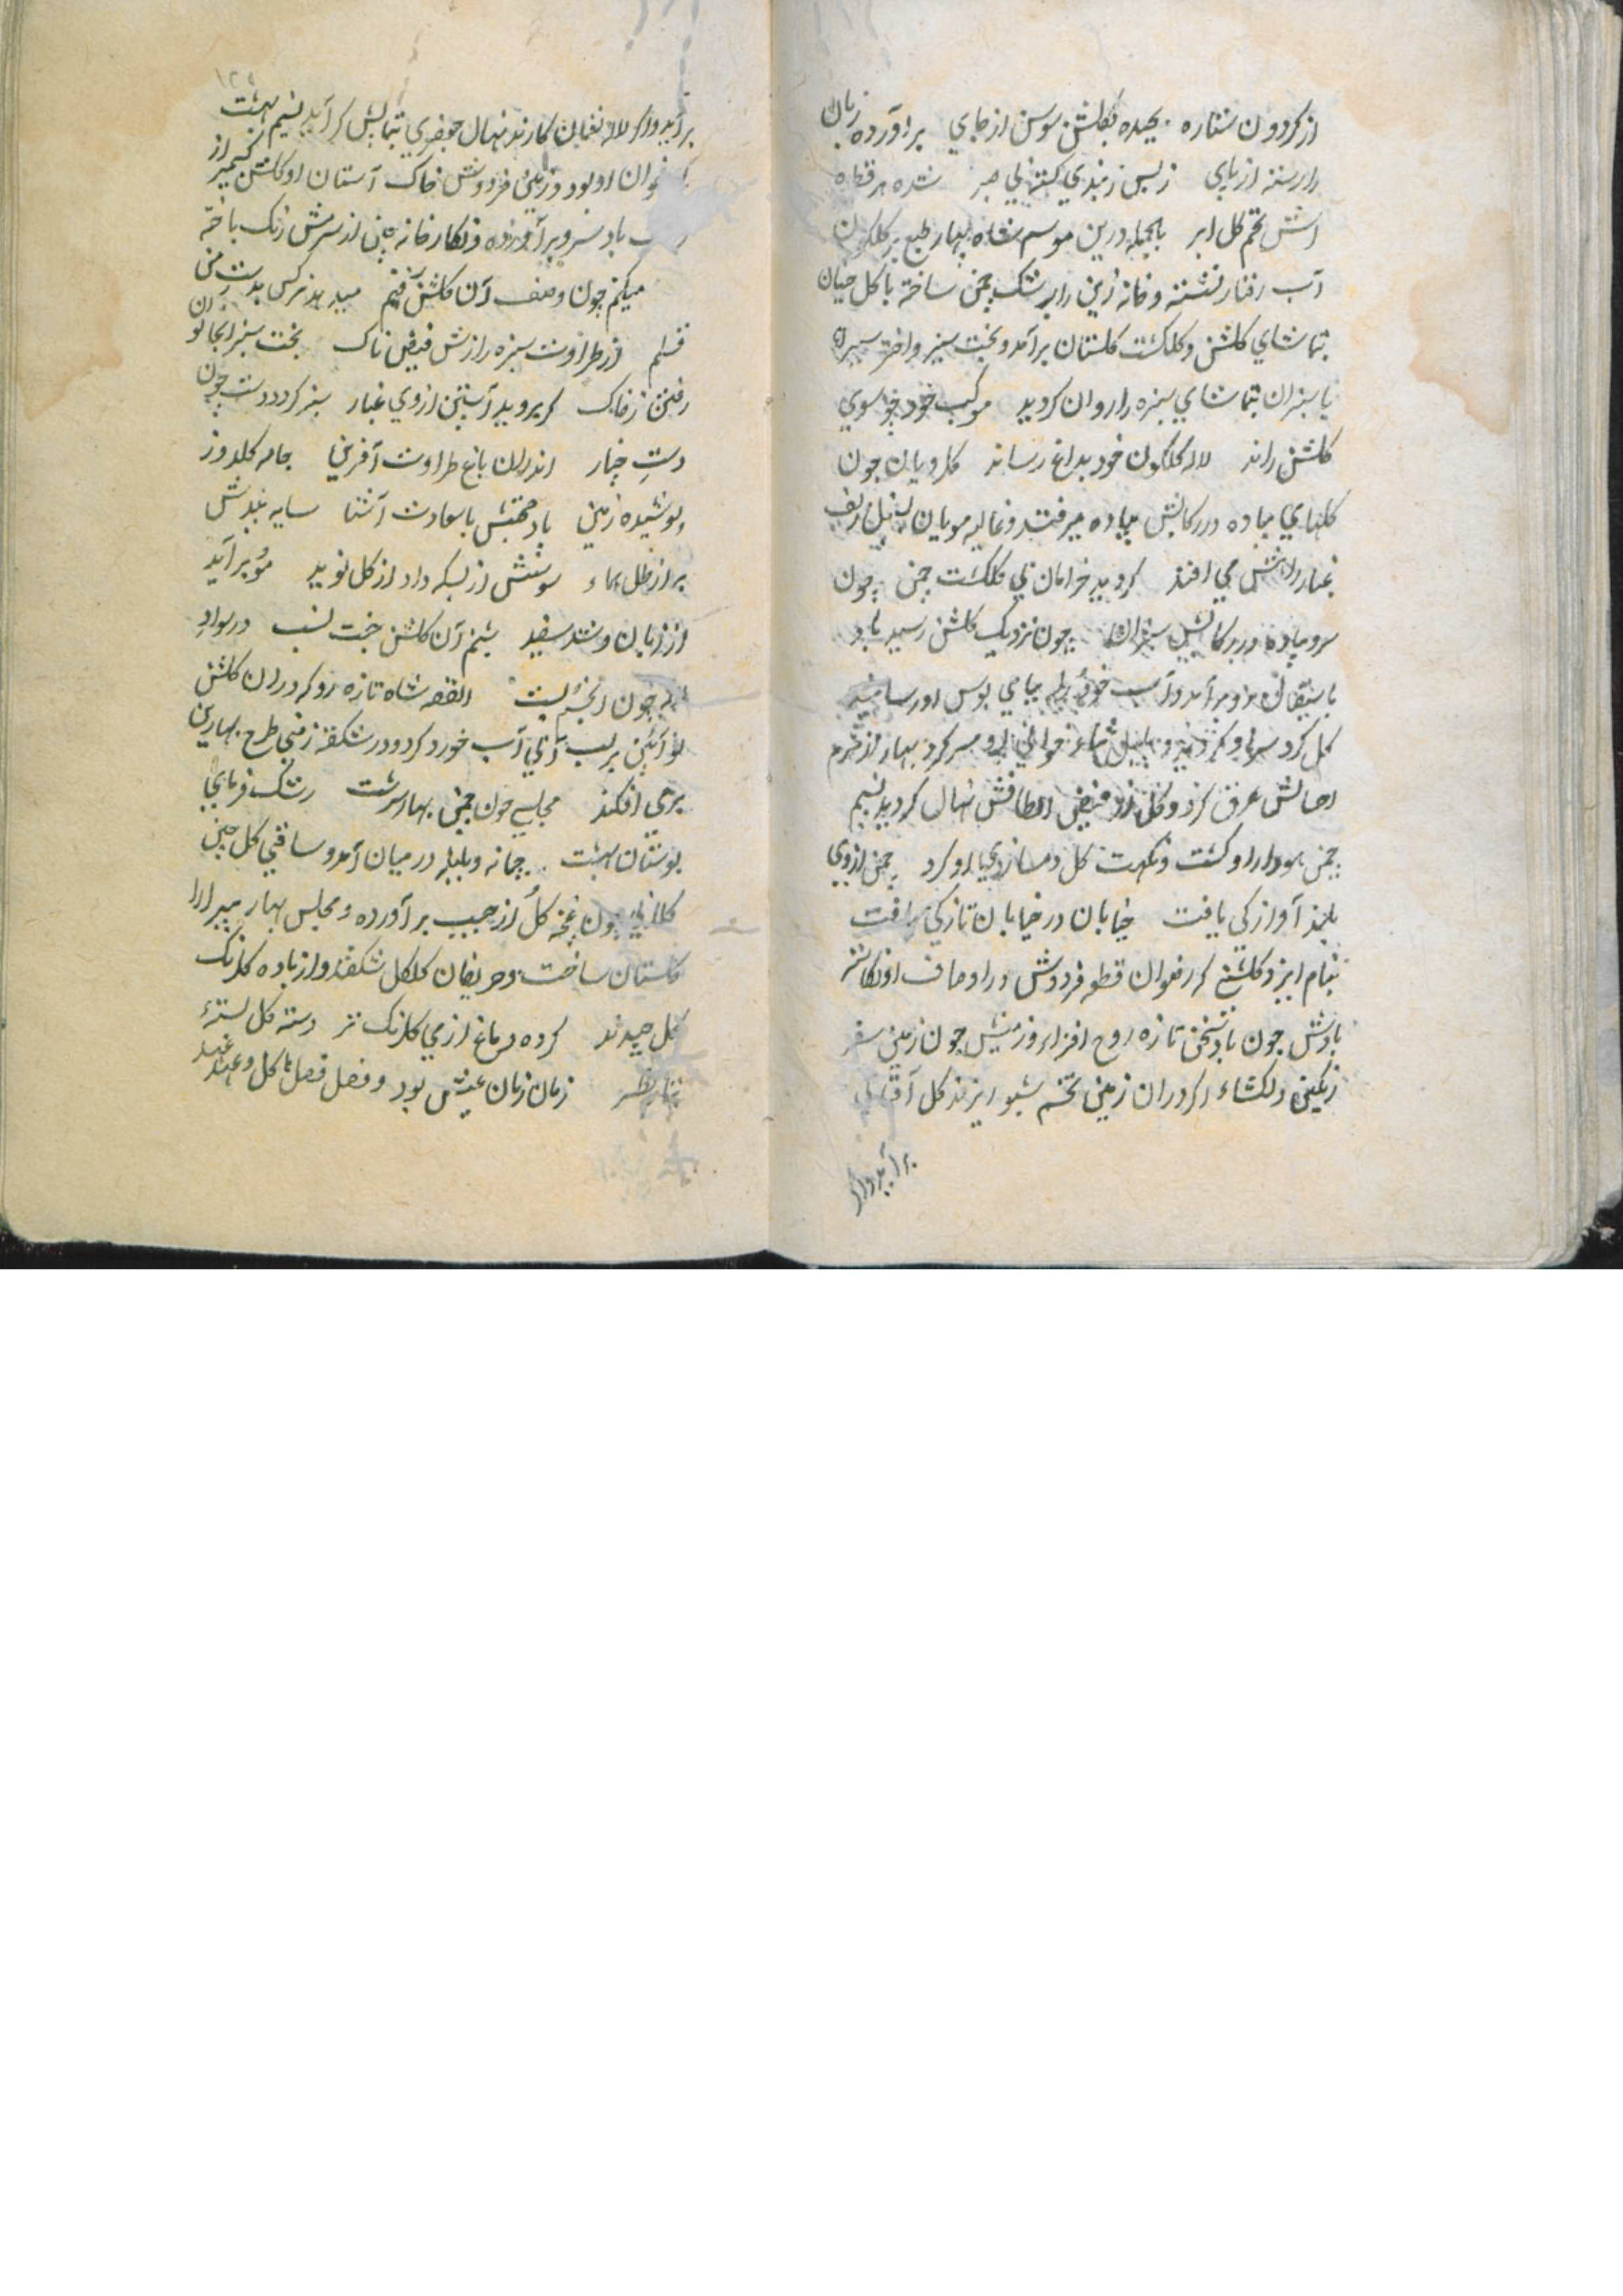 از کردون ستاره بچیده بکلشن سوسن از جای برآورده زبان
را رسته از پای زبس زمیدی کشته بی صبر شده هر قطره
اشش تخم کل ابر بالجمله درین موسم شاه بهار طبع بر کلکون
آب رفتار نشسته و خانه زین را برشک چمن ساخته با کل خیان
بتماشای کلشن و کلکشت کلستان برآمد و بخت سبز و اختر
با سبزان بتماشای سبزه را روان کردید موکب خود چو سوی
کلشن راند لاله کلکون خود بداغ رساند کلرویان چون
کلهای پیاده در رکابش پیاده میرفتند و غالیه مویان
غبار راهش می افتند کردید خرامان پی کلکشت چمن چون
سرو پیاده در رکابش سبزان چون نزدیک کلشن رسید باد
باستقبال او برآمد و آب خود را بپای بوس او رسانید
کل کرد سر او کردید و بلبل ثنا خوانی او سر کرد بهار از شرم
عرق کرد و کل از فیض الطافش نهال کردید نسیم
چمن هوادار او کشت و نکهت کل دمسازی او کرد چمن از وی
بلند آوازکی یافت خیابان در خیابان تازکی یافت
بنام ایزد کلشنی که رضوان قطعه فردوش در اوصاف او نکاشته
بادش چون باد سخن تازه روح افزا و زمینش چون زمین شعر
رنکین دلکشاء اکر دران زمین تخم شبو ریزند کل آفتاب
برآید و اکر
برآید و اکر لاله نعمان کارند نهال جعفری بتماشایش کر آید نسیم بهشت
خوان او بود و زمین فردوش خاک آستان او کلشن کشمیر از
باد سرد برآورده و نکارخانه چین از سرمش رنک باخته
میکنم چون وصف آن کلشن رقم میدهد نرکس بدست من
قلم از طراوت سبزه رازش فیض ناک بخت سبز آنجا توان
رفتن ز خاک کر بروید آستین از وی غبار سبز کردد دست چون
دست چنار اندران باغ طراوت آفرین جامه کلدوز
پوشیده زمین باد بختش با سعادت آشنا سایه بیدش
براز ظل هماء سوسنش از بسکه داد از کل نوید مو برآید
از زبان و شد سفید شبنم آن کلشن جنت نسب در سواد
شب چون انجم است القصه شاه تازه رو که دران کلشن
نو آئین بر لب آبی آب خورد کرد و در شکفته زمینی طرح بهارین
بزمی افکند مجلسی چون چمن بهار سرشت رشک فرمای
بوستان بهشت پیمانه و بلبله در میان آمد و ساقی کل جبین
کلابی چون غنچه کل از جیب برآورده و مجلس بهار پیرا را
کلستان ساخت و حریفان کلکل شکفتند و از باده کلرنک
کل چیدند کرده دماغ از می کلرنک تر دسته کل بسته
زمان زمان عیش بود و فصل فصل کل و عهد عهد